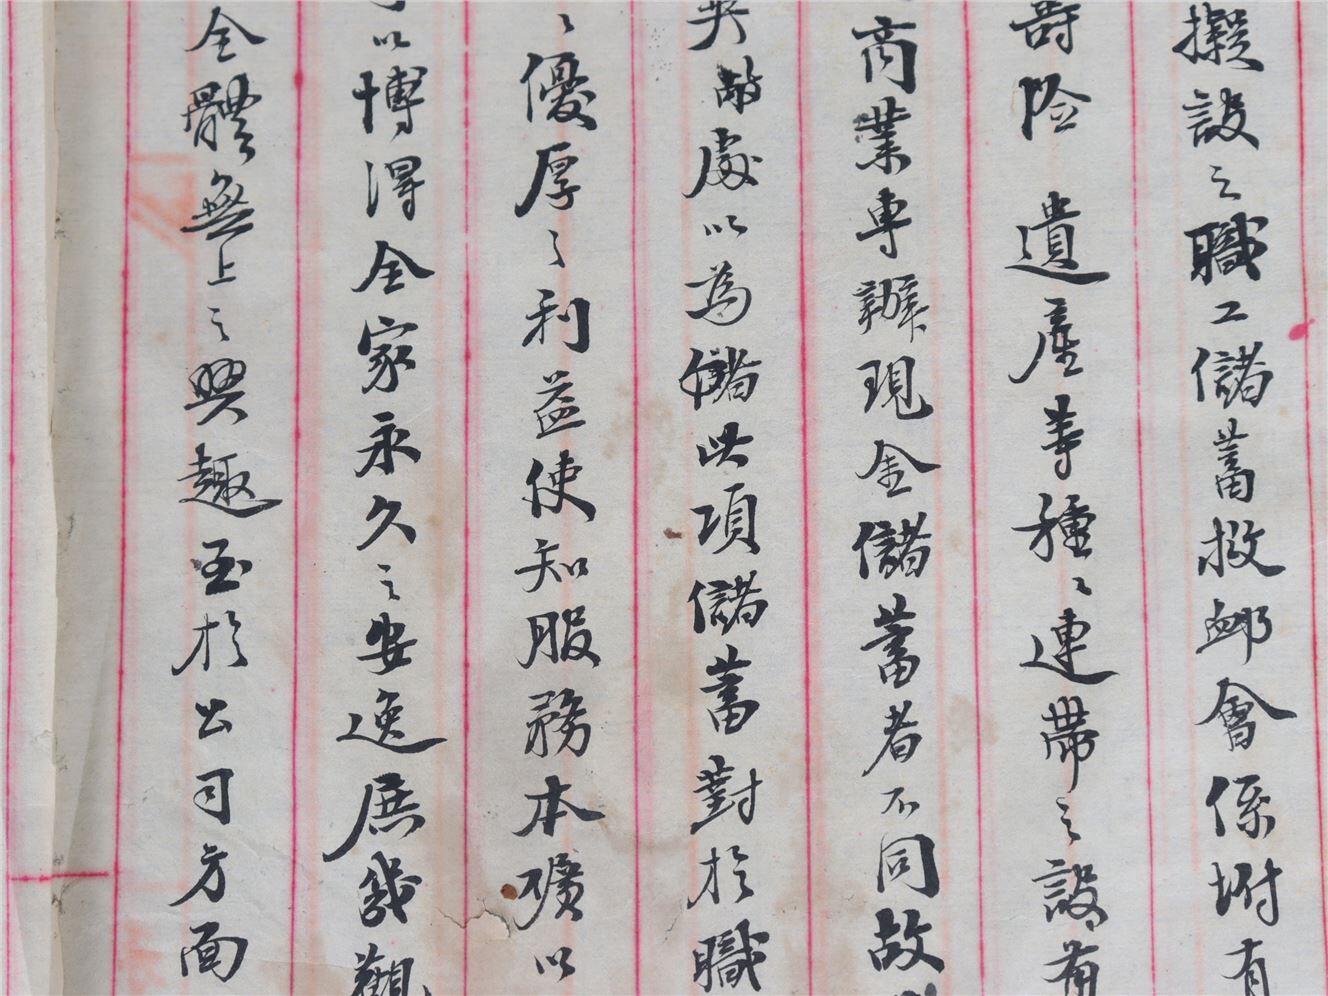 擬設之職工儲蓄救卹會係坿有
壽險 遺產等種〻連帶之設有
商業專辦現金儲蓄者不同故
奥敝處以為儲此項儲蓄對於職
〻優厚之利益使知服務本礦以
以博得全家永久之安逸庶幾觀
全體無上之興趣至於公司方面